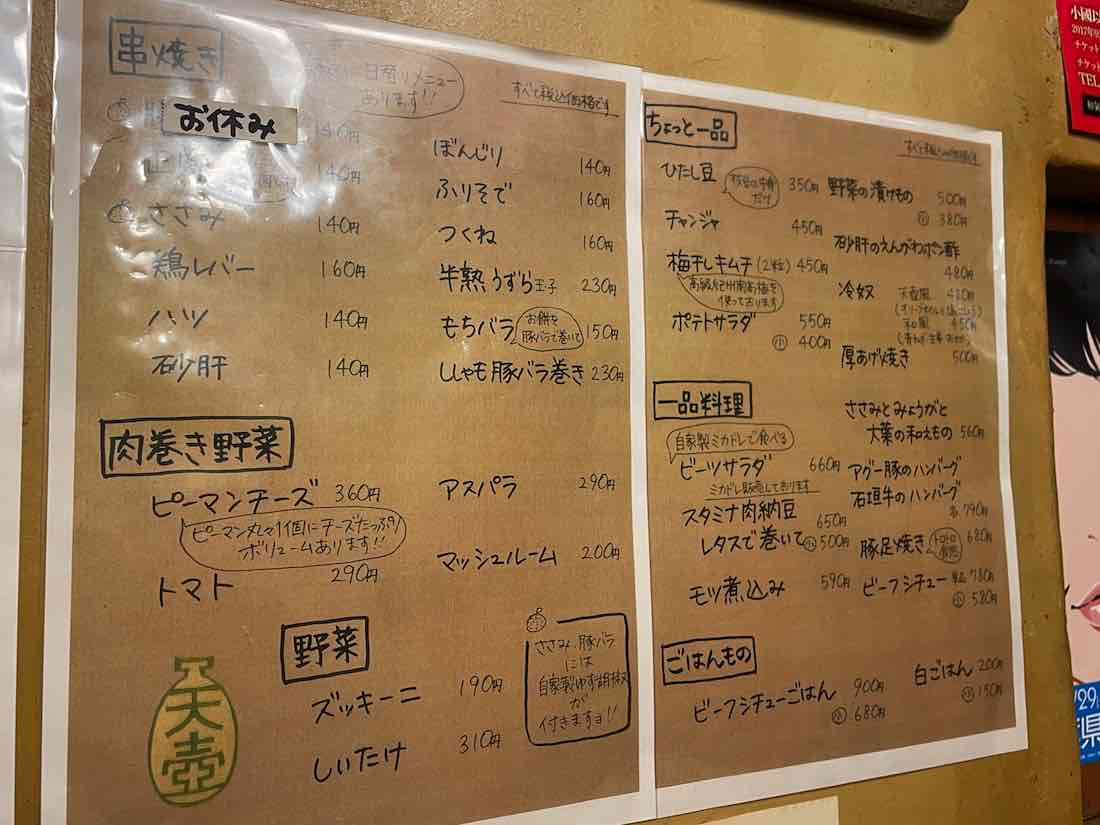 串焼き
日替りメニュー
あります!!
すべて税込価格です
お休み
140円
140円
ささみ 140円
鶏レバー 160円
ハツ 140円
砂肝 140円
ぼんじり 140円
ふりそで 160円
つくね 160円
半熟うずら玉子 230円
もちバラ お餅を豚バラで巻いて 150円
ししゃも豚バラ巻き 230円
肉巻き野菜
ピーマンチーズ 360円
ピーマン丸々1個にチーズたっぷり
ボリュームあります!!
トマト 290円
アスパラ 290円
マッシュルーム 200円
野菜
ズッキーニ 190円
しいたけ 310円
ささみ、豚バラ
には
自家製ゆず胡椒
が
付きますョ!!
天壺
ちょっと一品
すべて税込価格です
ひたし豆 350円
チャンジャ 450円
梅干しキムチ(2粒) 450円
高級紀州南高梅を
使って有ります
ポテトサラダ 550円
小 400円
野菜の漬けもの 500円
小 380円
砂肝のえんがわポン酢
480円
冷奴 天壺風 480円
和風 450円
厚あげ焼き 500円
一品料理
自家製ミカドレで食べる
ビーツサラダ 660円
ミカドレ販売して有ります
スタミナ肉納豆 650円
レタスで巻いて 小 500円
モツ煮込み 590円
ささみとみょうがと
大葉の和えもの 560円
アグー豚のハンバーグ
石垣牛のハンバーグ
各 790円
豚足焼き 680円
ビーフシチュー 単品 780円
小 580円
ごはんもの
ビーフシチューごはん 900円
小 680円
白ごはん 200円
小 150円
2017年
チケット
チケット
TEL
/29
県